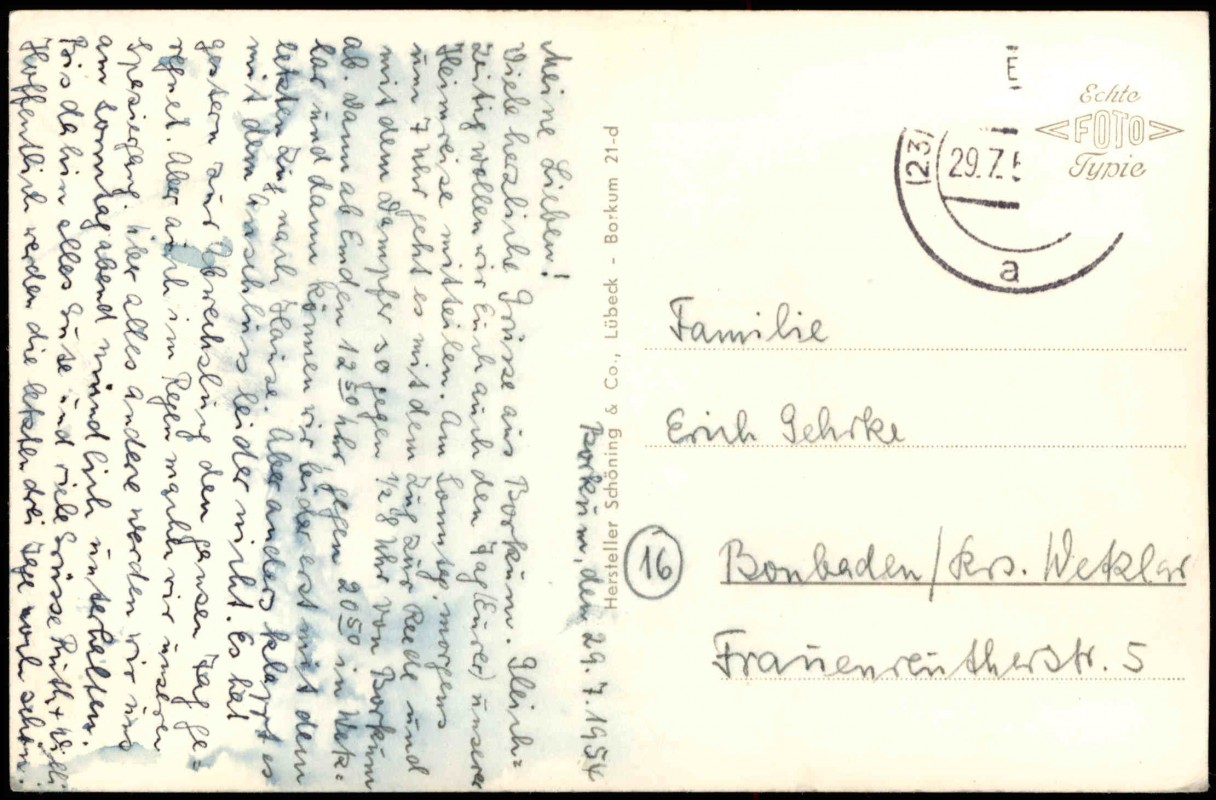 Borkum, den 29.7.1954
Meine Lieben!
Viele herzliche Grüsse aus Borkum. Gleich=
zeitig wollen wir Euch auch den Tag (Eurer) unserer
Heimreise mitteilen. Am Sonntag morgens
um 7 Uhr geht es mit dem Zug zur Reede und
mit dem Dampfer so gegen 1/2 8 Uhr von Borkum
ab. Dann ab Emden 12 50 Uhr gegen 20 50 in Wetz=
lar und dann können wir leider erst mit dem
letzten Zug nach Hause. Aber anders klappt es
mit dem Anschluss leider nicht. Es hat
gestern zur Abwechslung den ganzen Tag ge=
regnet. Aber auch im Regen machen wir unseren
Spaziergang. Über alles andere werden wir uns
am Sonntag abend mündlich unterhalten.
Bis dahin alles Gute und viele Grüsse Ruth + Willi
Hoffentlich werden die letzten drei Tage noch schön.
Hersteller Schöning & Co., Lübeck - Borkum 21-d
Echte
FOTO
Typie
(23)
29.7.5
a
Familie
Erich Gehrke
(16) Bonbaden/Krs. Wetzlar
Frauenreutherstr. 5